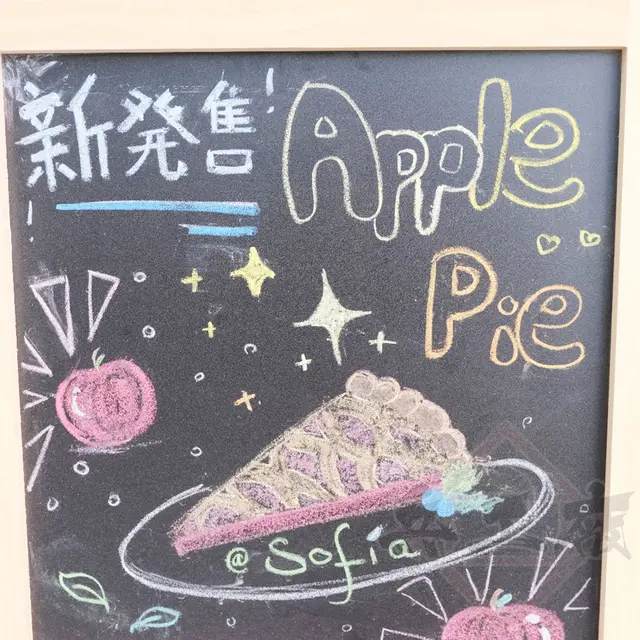 新発售!
Apple
Pie
@Sofia